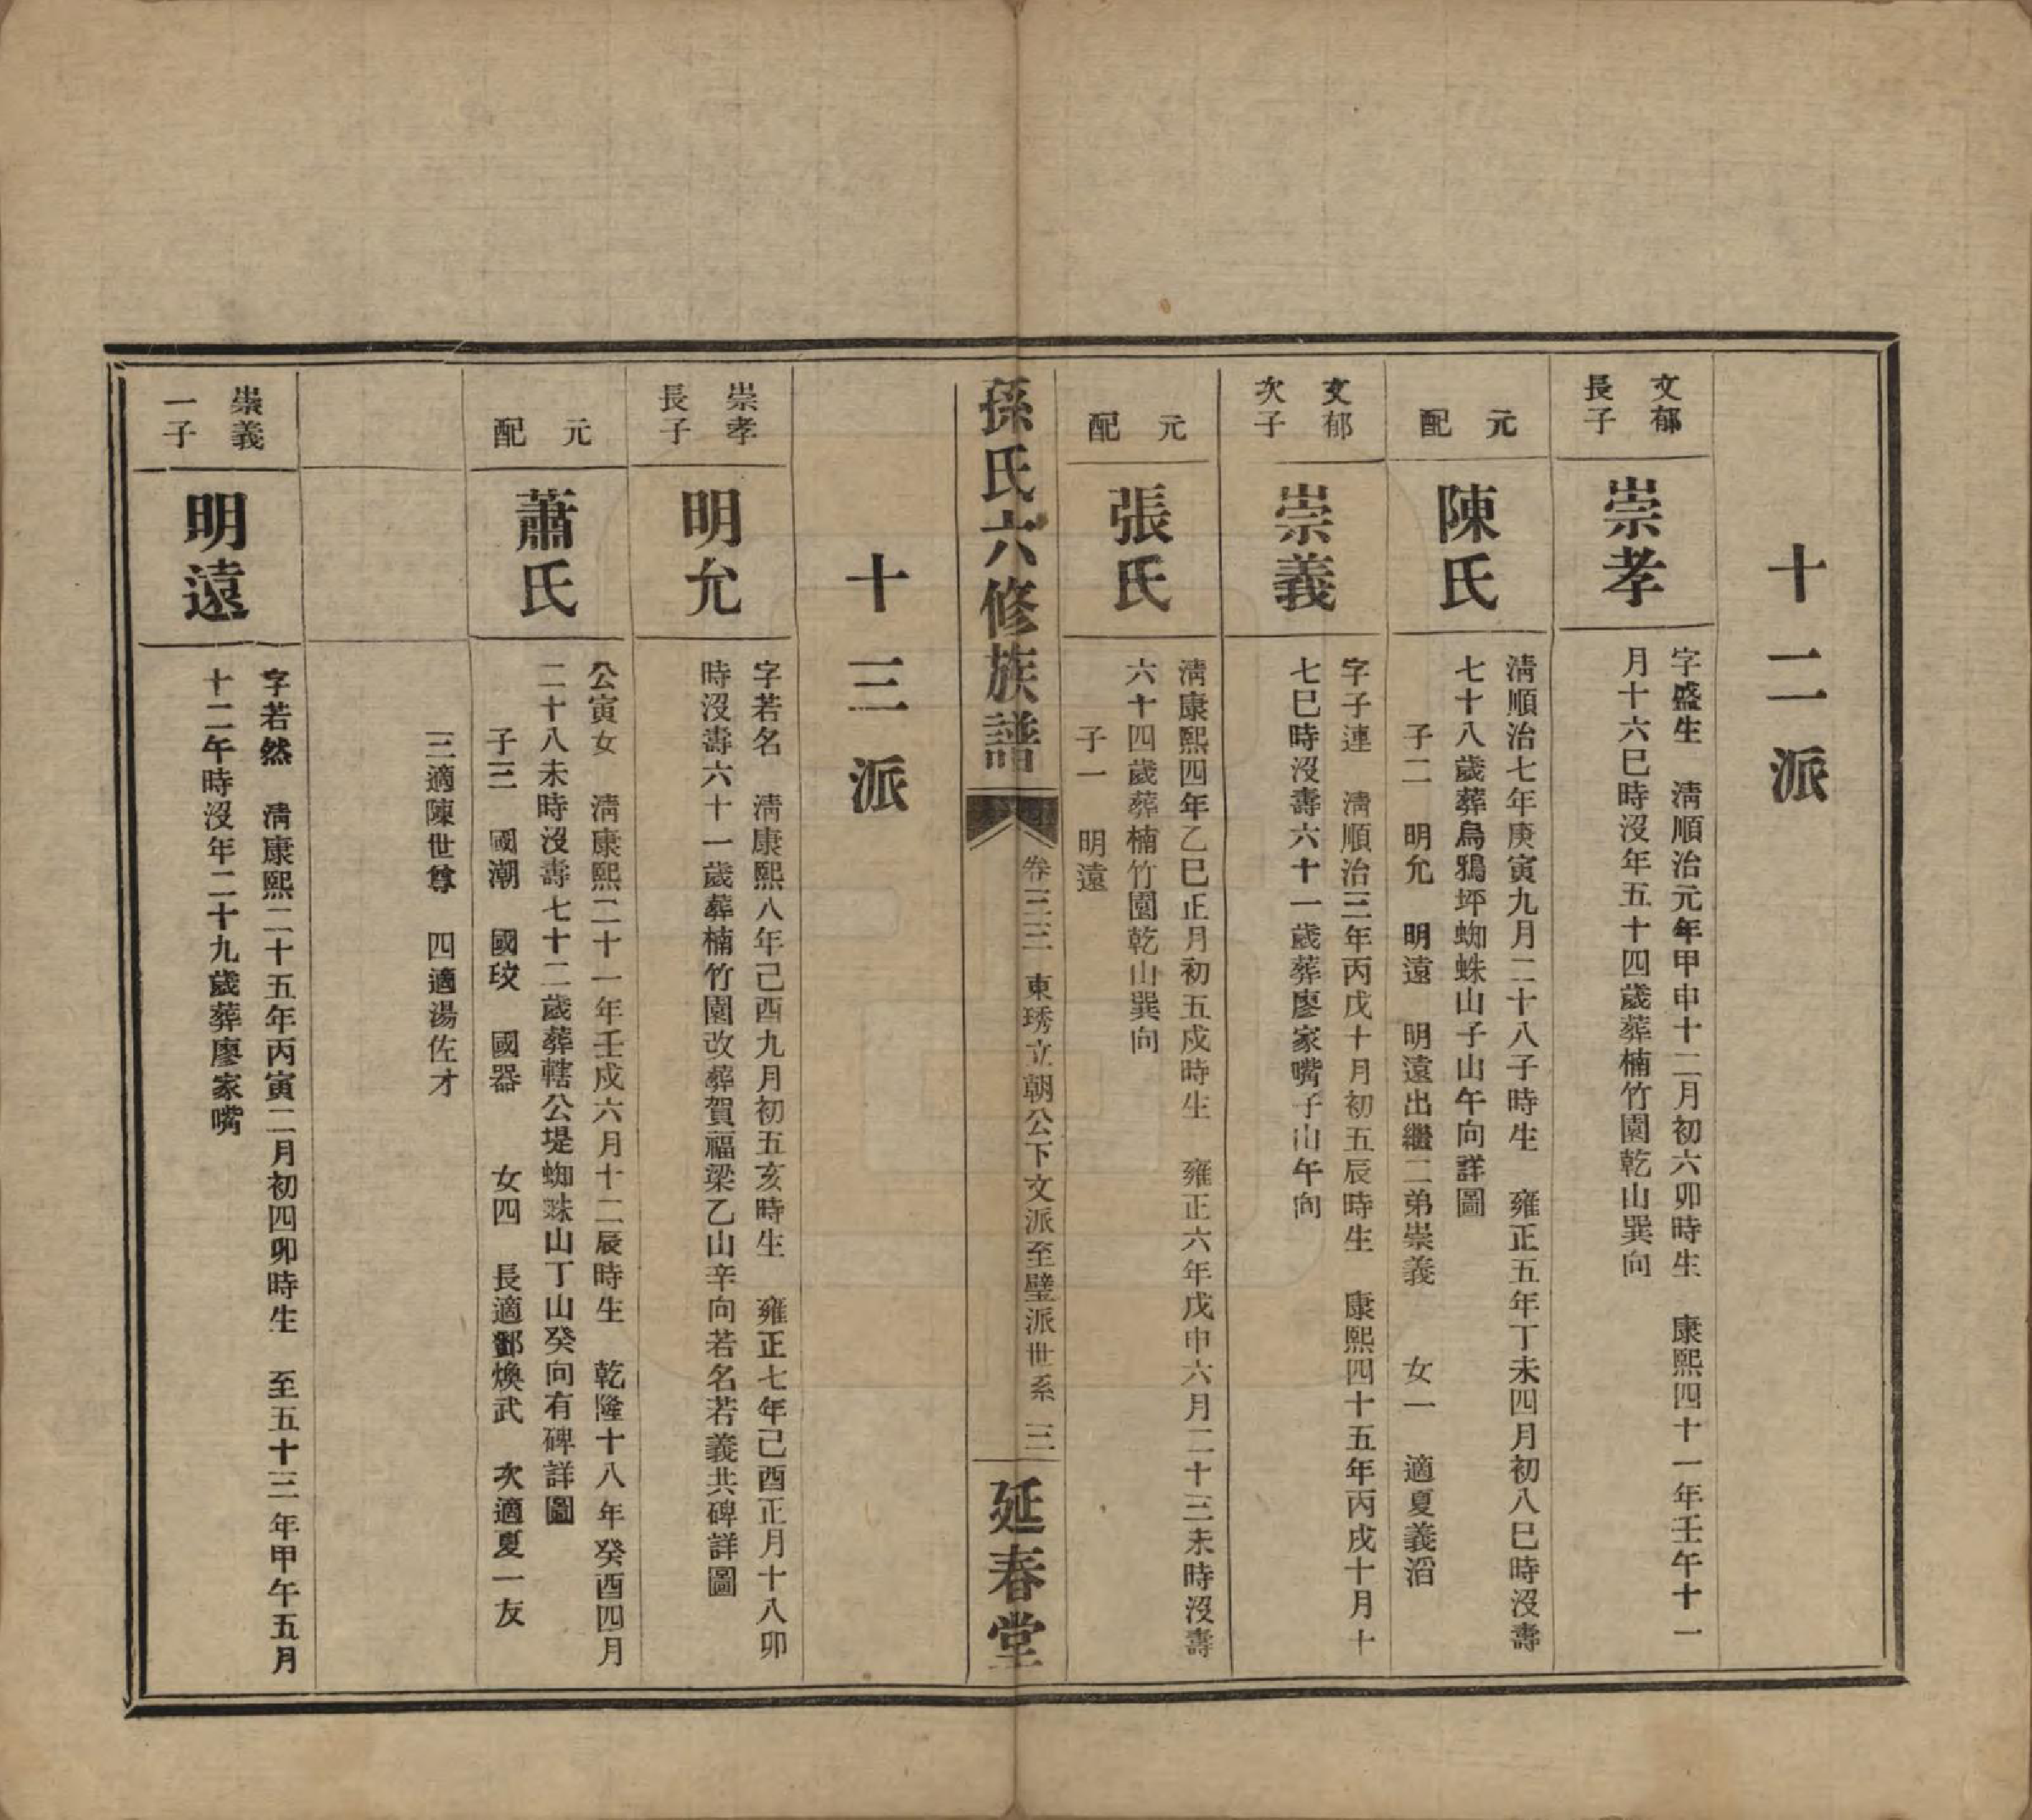 十二派
文郁
長子
崇孝
字盛生　淸順治元年甲申十二月初六卯時生　康熙四十一年壬午十一
月十六巳時沒年五十四歲葬楠竹園乾山巽向
元
配
陳氏
淸順治七年庚寅九月二十八子時生　雍正五年丁未四月初八巳時沒壽
七十八歲葬烏鴉坪蜘蛛山子山午向詳圖
子二　明允　明遠　明遠出繼二弟崇義　女一　適夏義滔
文郁
次子
崇義
字子連　淸順治三年丙戊十月初五辰時生　康熙四十五年丙戌十月十
七巳時沒壽六十一歲葬廖家嘴子山午向
元
配
張氏
淸康熙四年乙巳正月初五戍時生　雍正六年戊申六月二十三未時沒壽
六十四歲葬楠竹園乾山巽向
子一　明遠
孫氏六修族譜
卷三三　東琇立朝公下文派至璧派世系　三
延春堂
十三派
崇孝
長子
明允
字若名　淸康熙八年己酉九月初五亥時生　雍正七年己酉正月十八卯
時沒壽六十一歲葬楠竹園改葬賀福梁乙山辛向若名若義共碑詳圖
元
配
蕭氏
公寅女　淸康熙二十一年壬戍六月十二辰時生　乾隆十八年癸酉四月
二十八未時沒壽七十二歲葬轄公堤蜘蛛山丁山癸向有碑詳圖
子三　國潮　國玟　國器　女四　長適鄧煥武　次適夏一友
三適陳世尊　四適湯佐才
崇義
一子
明遠
字若然　淸康熙二十五年丙寅二月初四卯時生　至五十三年甲午五月
十二午時沒年二十九歲葬廖家嘴